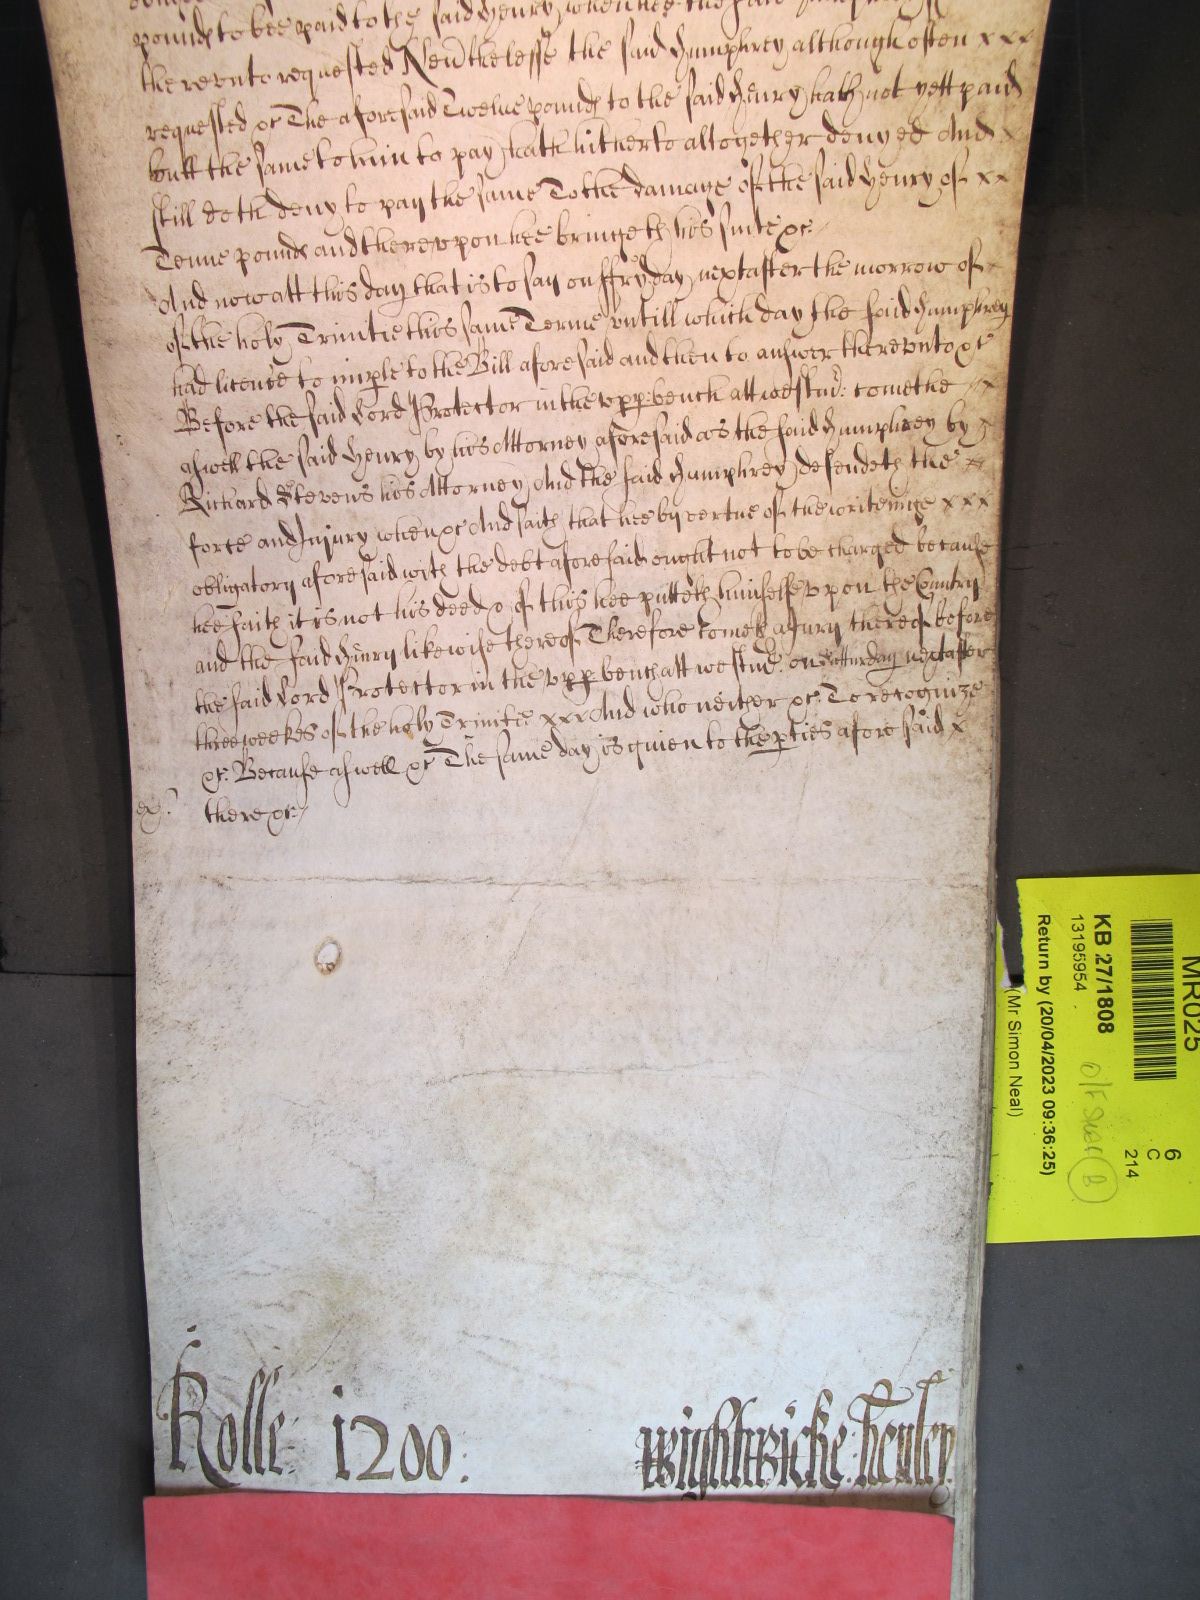 pounds to bee paid to the said Henry when hee the said
therevnto requested Nev'thelesse the said Humphrey although often x x x
requested &c The aforesaid Twelue pounds to the said Henry hath not yett paid
butt the same to him to pay hath hitherto altogether denyed And x
still doth deny to pay the same To the damage of the said Henry of x x
Tenne pounds and therevpon hee bringeth his suite &c
And now att this day that is to say on ffryday next after the morrow of
of the holy Trinitie this same Terme vntill which day the said Humphrey
had licence to imple to the Bill aforesaid and then to answer therevnto &c
Before the said Lord Protector in the vpp: bench att westm': comethe x
aswell the said Henry by his Attorney aforesaid as the said Humphrey by
Richard Stevens his Attorney And the said Humphrey defendeth the
force and Injury when &c And saith that hee by vertue of the writeinge x x x
obligatory aforesaid with the debt aforesaid ought not to be charged because
hee saith it is not his deed & of this hee putteth himselfe vpon the Country
and the said Henry likewise thereof Therefore cometh a Jury thereof before
the said Lord Protector in the vpp bench att westm': on Satturday next after
three weekes of the holy Trinitie x x x And who neither &c To recognize
&c Because aswell &c The same day is giuen to the p'ties aforesaid x
there &c
Rolle: 1200:
Wightwicke: Henley
MR025
6
C
214
KB 27/1808
13195954
Return by (20/04/2023 09:36:25)
(Mr Simon Neal)
B